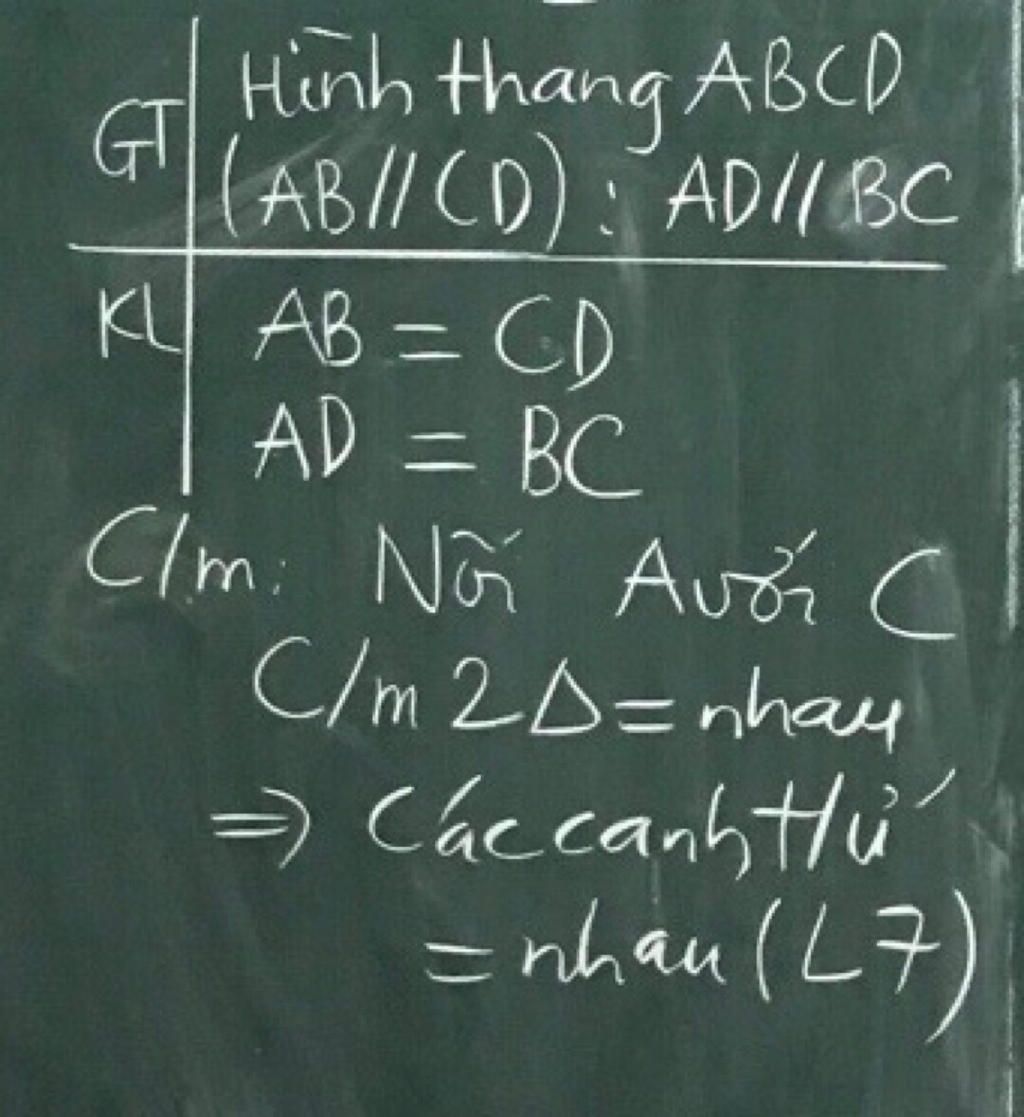 GT Hình thang ABCD
(AB//CD) : AD//BC
KL AB = CD
AD = BC
C/m: Nối A với C
C/m 2Δ = nhau
=> Các cạnh t/ứ
= nhau (L7)